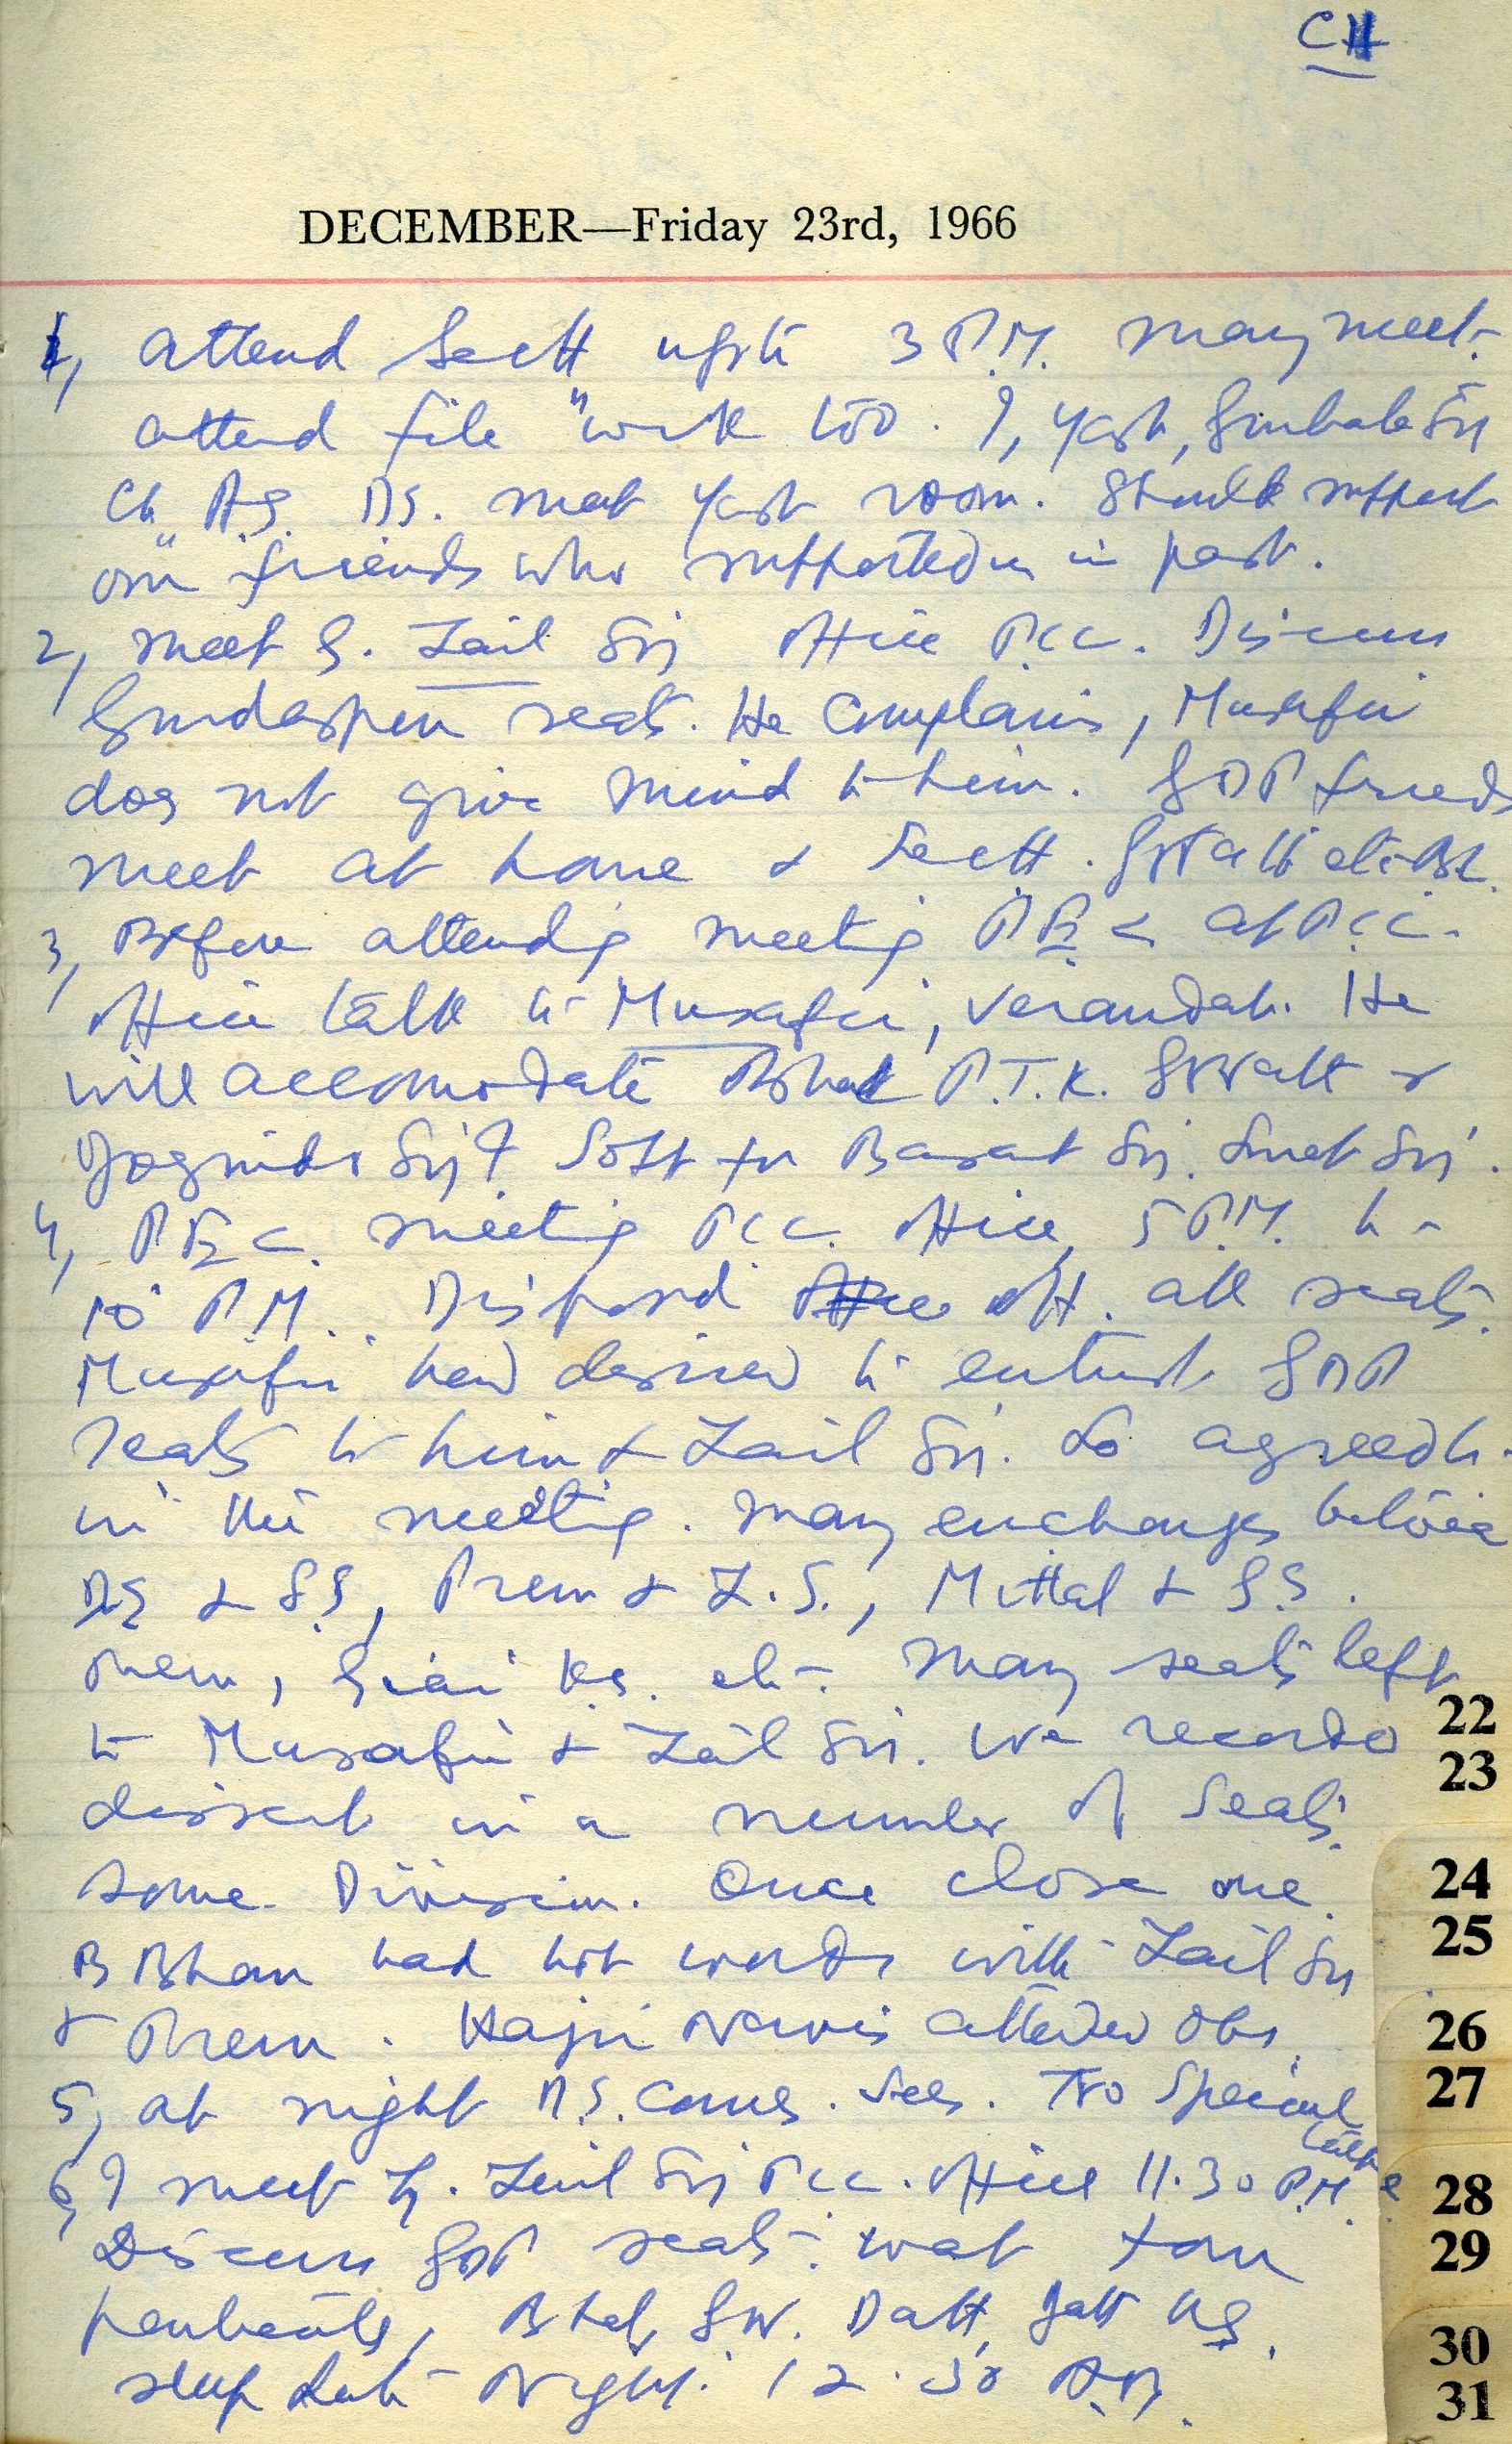 CH
DECEMBER—Friday 23rd, 1966
1, Attend Sectt upto 3 P.M. many meet.
Attend file work too. I, Yash, Gurbala Sin
Ch A.S. D.S. meet Yash room. Should support
our friends who supported us in past.
2, Meet G. Zail Sin office P.C.C. Discuss
Gurdaspur seats. He complains, Musafir
does not give mind to him. GDP friends
meet at home & Sectt.
3, Before attending meeting P.E.C at P.C.C.
office talk to Musafir, verandah. He
will accomodate P.T.K. &
Joginder Sin? Soft for Basant Sin.
4, P.E.C. meeting P.C.C. office, 5 P.M. to
10 P.M. Disposed off all seats.
Musafir had desired to entrust GDP
seats to him & Zail Sin. So agreed to
in the meeting. Many exchanges between
D.S & G.S, Prem & Z.S., Mittal & G.S.
Prem, Giani K.S. etc. Many seats left
to Musafir & Zail Sin. We recorded
dissent in a number of seats.
Some Division. Once close one.
B Bhan had hot words with Zail Sin
& Prem. Hajri Navis attended Obs.
5, At night D.S. comes. Sees. No special
talk
6, I meet G. Zail Sin P.C.C. office 11.30 P.M.
Discuss GDP seats. want four
Bhat, G.W. Datt, K.S.
sleep late night. 12.30
22
23
24
25
26
27
28
29
30
31